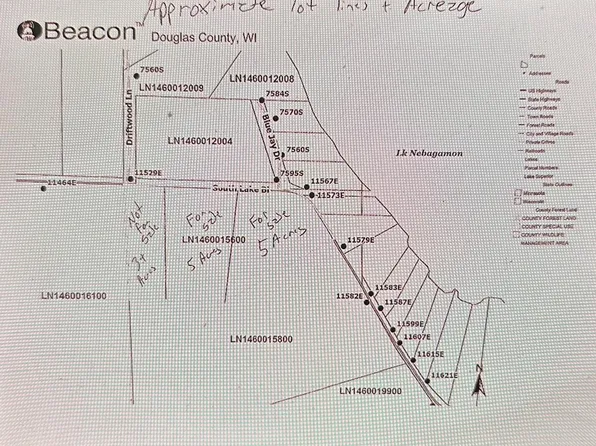 Approximate lot lines + Acreage
Beacon™ Douglas County, WI
7560S
LN1460012009
LN1460012008
7584S
7570S
Driftwood Ln
Blue Jay Dr
LN1460012004
7560S
Lk Nebagamon
11529E
7595S
11567E
11464E
South Lake Bl
11573E
Not
For
Sale
3+
Acres
For
Sale
5 Acres
For
Sale
5 Acres
LN1460015600
11579E
LN1460016100
11583E
11582E
11587E
11599E
11607E
LN1460015800
11615E
11621E
LN1460019900
N
Parcels
Addresses
Roads
US Highways
State Highways
County Roads
Town Roads
Forest Roads
City and Village Roads
Private Drives
Railroads
Lakes
Parcel Numbers
Lake Superior
State Outlines
Minnesota
Wisconsin
County Forest Land
COUNTY FOREST LAND
COUNTY SPECIAL USE
COUNTY WILDLIFE
MANAGEMENT AREA